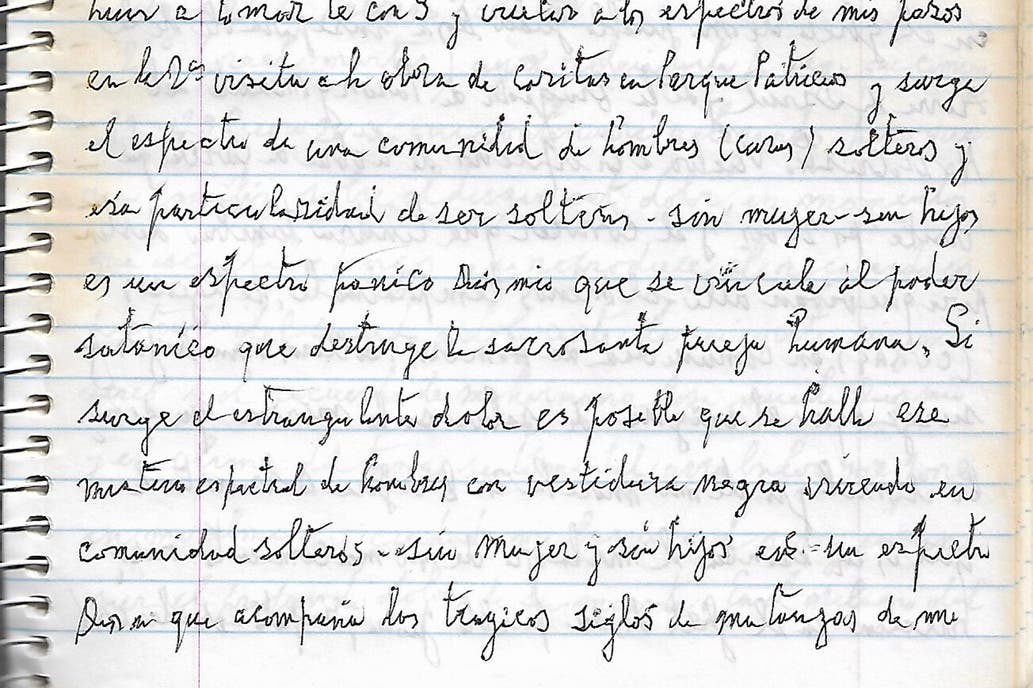 a tomar te con S y vuelvo a los espectros de mis pasos
en la 2ª visita a la obra de caritas en Parque Patricios y surge
el espectro de una comunidad de hombres (curas) solteros y
esa particularidad de ser solteros - sin mujer - sin hijos
es un espectro panico Dios mio que se vincula al poder
satanico que destruye la sacrosanta pareja humana. Si
surge el estrangulante dolor es posible que se halle ese
misterio espectral de hombres con vestidura negra viviendo en
comunidad solteros - sin mujer y sin hijos es - un espectro
que acompaña los tragicos siglos de matanzas de